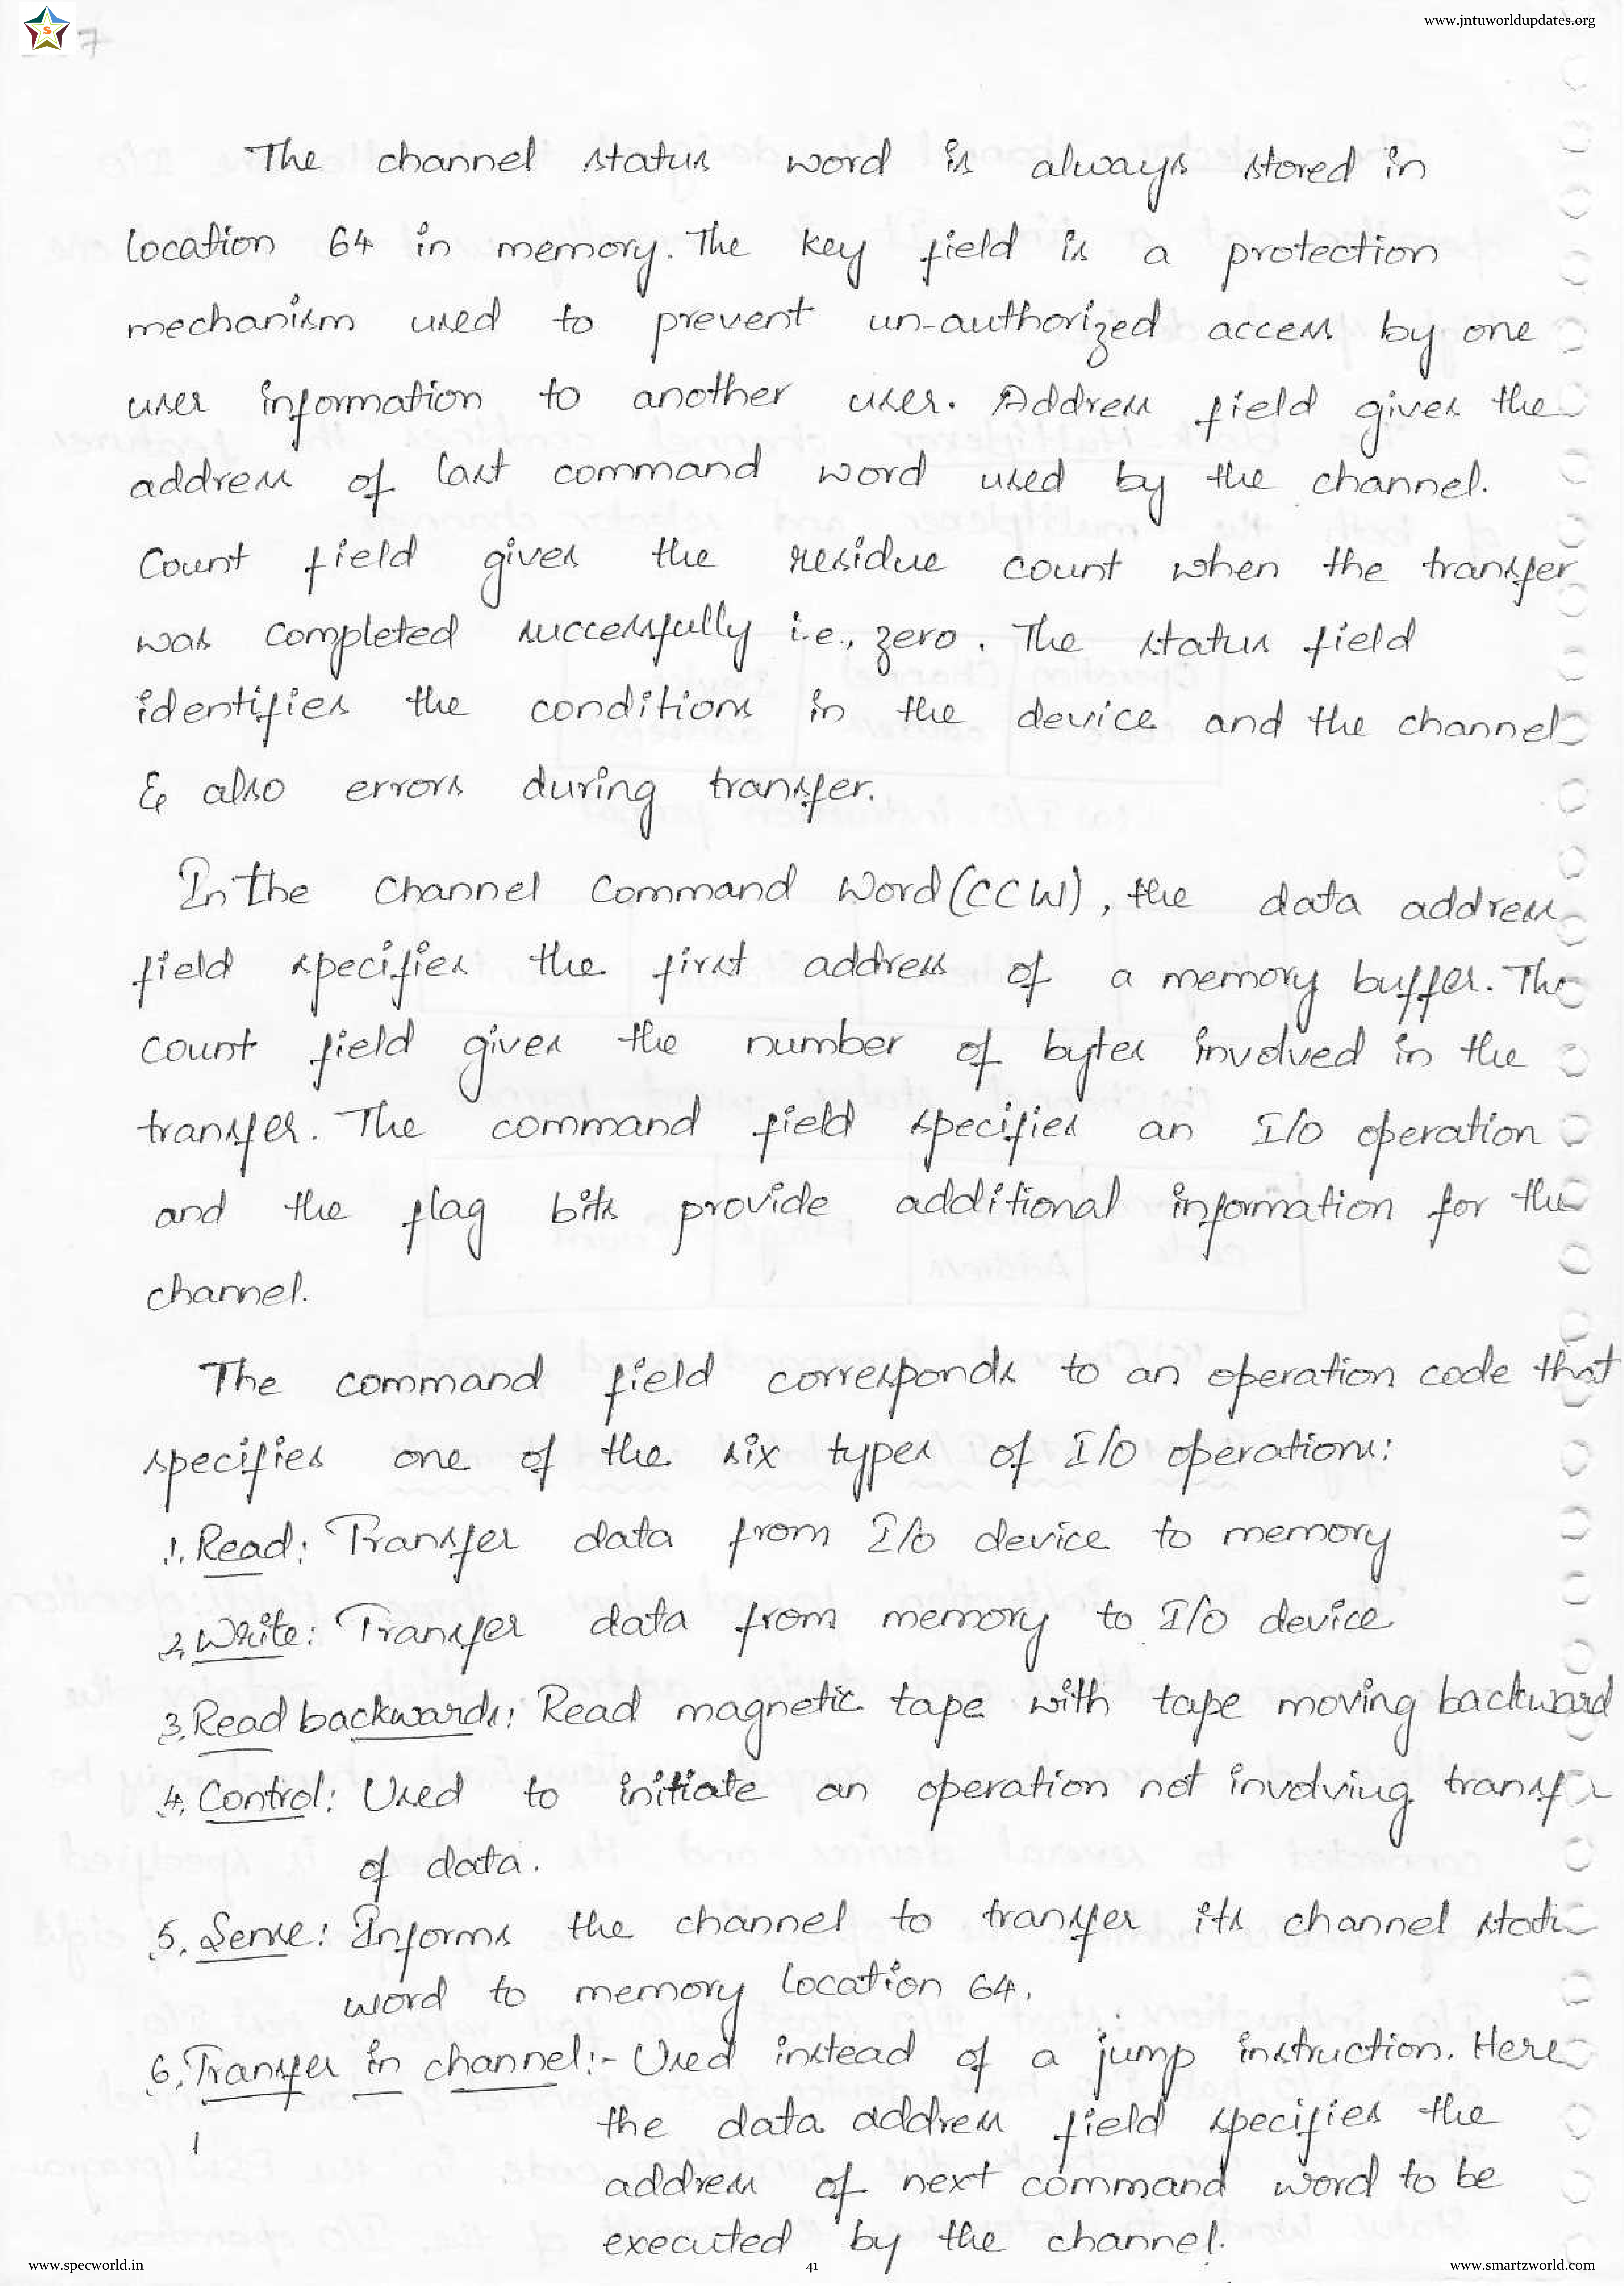 www.jntuworldupdates.org
S
7
The channel status word is always stored in
location 64 in memory. The key field is a protection
mechanism used to prevent un-authorized access by one
user information to another user. Address field gives the
address of last command word used by the channel.
Count field gives the residue count when the transfer
was completed successfully i.e., zero. The status field
identifies the conditions in the device and the channel
& also errors during transfer.
In the Channel Command Word (CCW), the data address
field specifies the first address of a memory buffer. The
count field gives the number of bytes involved in the
transfer. The command field specifies an I/O operation
and the flag bits provide additional information for the
channel.
The command field corresponds to an operation code that
specifies one of the six types of I/O operations:
1. Read: Transfer data from I/O device to memory
2. Write: Transfer data from memory to I/O device
3. Read backwards: Read magnetic tape with tape moving backward
4. Control: Used to initiate an operation not involving transfer
of data.
5. Sense: Informs the channel to transfer its channel status
word to memory location 64.
6. Transfer in channel:- Used instead of a jump instruction. Here
the data address field specifies the
address of next command word to be
executed by the channel.
www.specworld.in
41
www.smartzworld.com